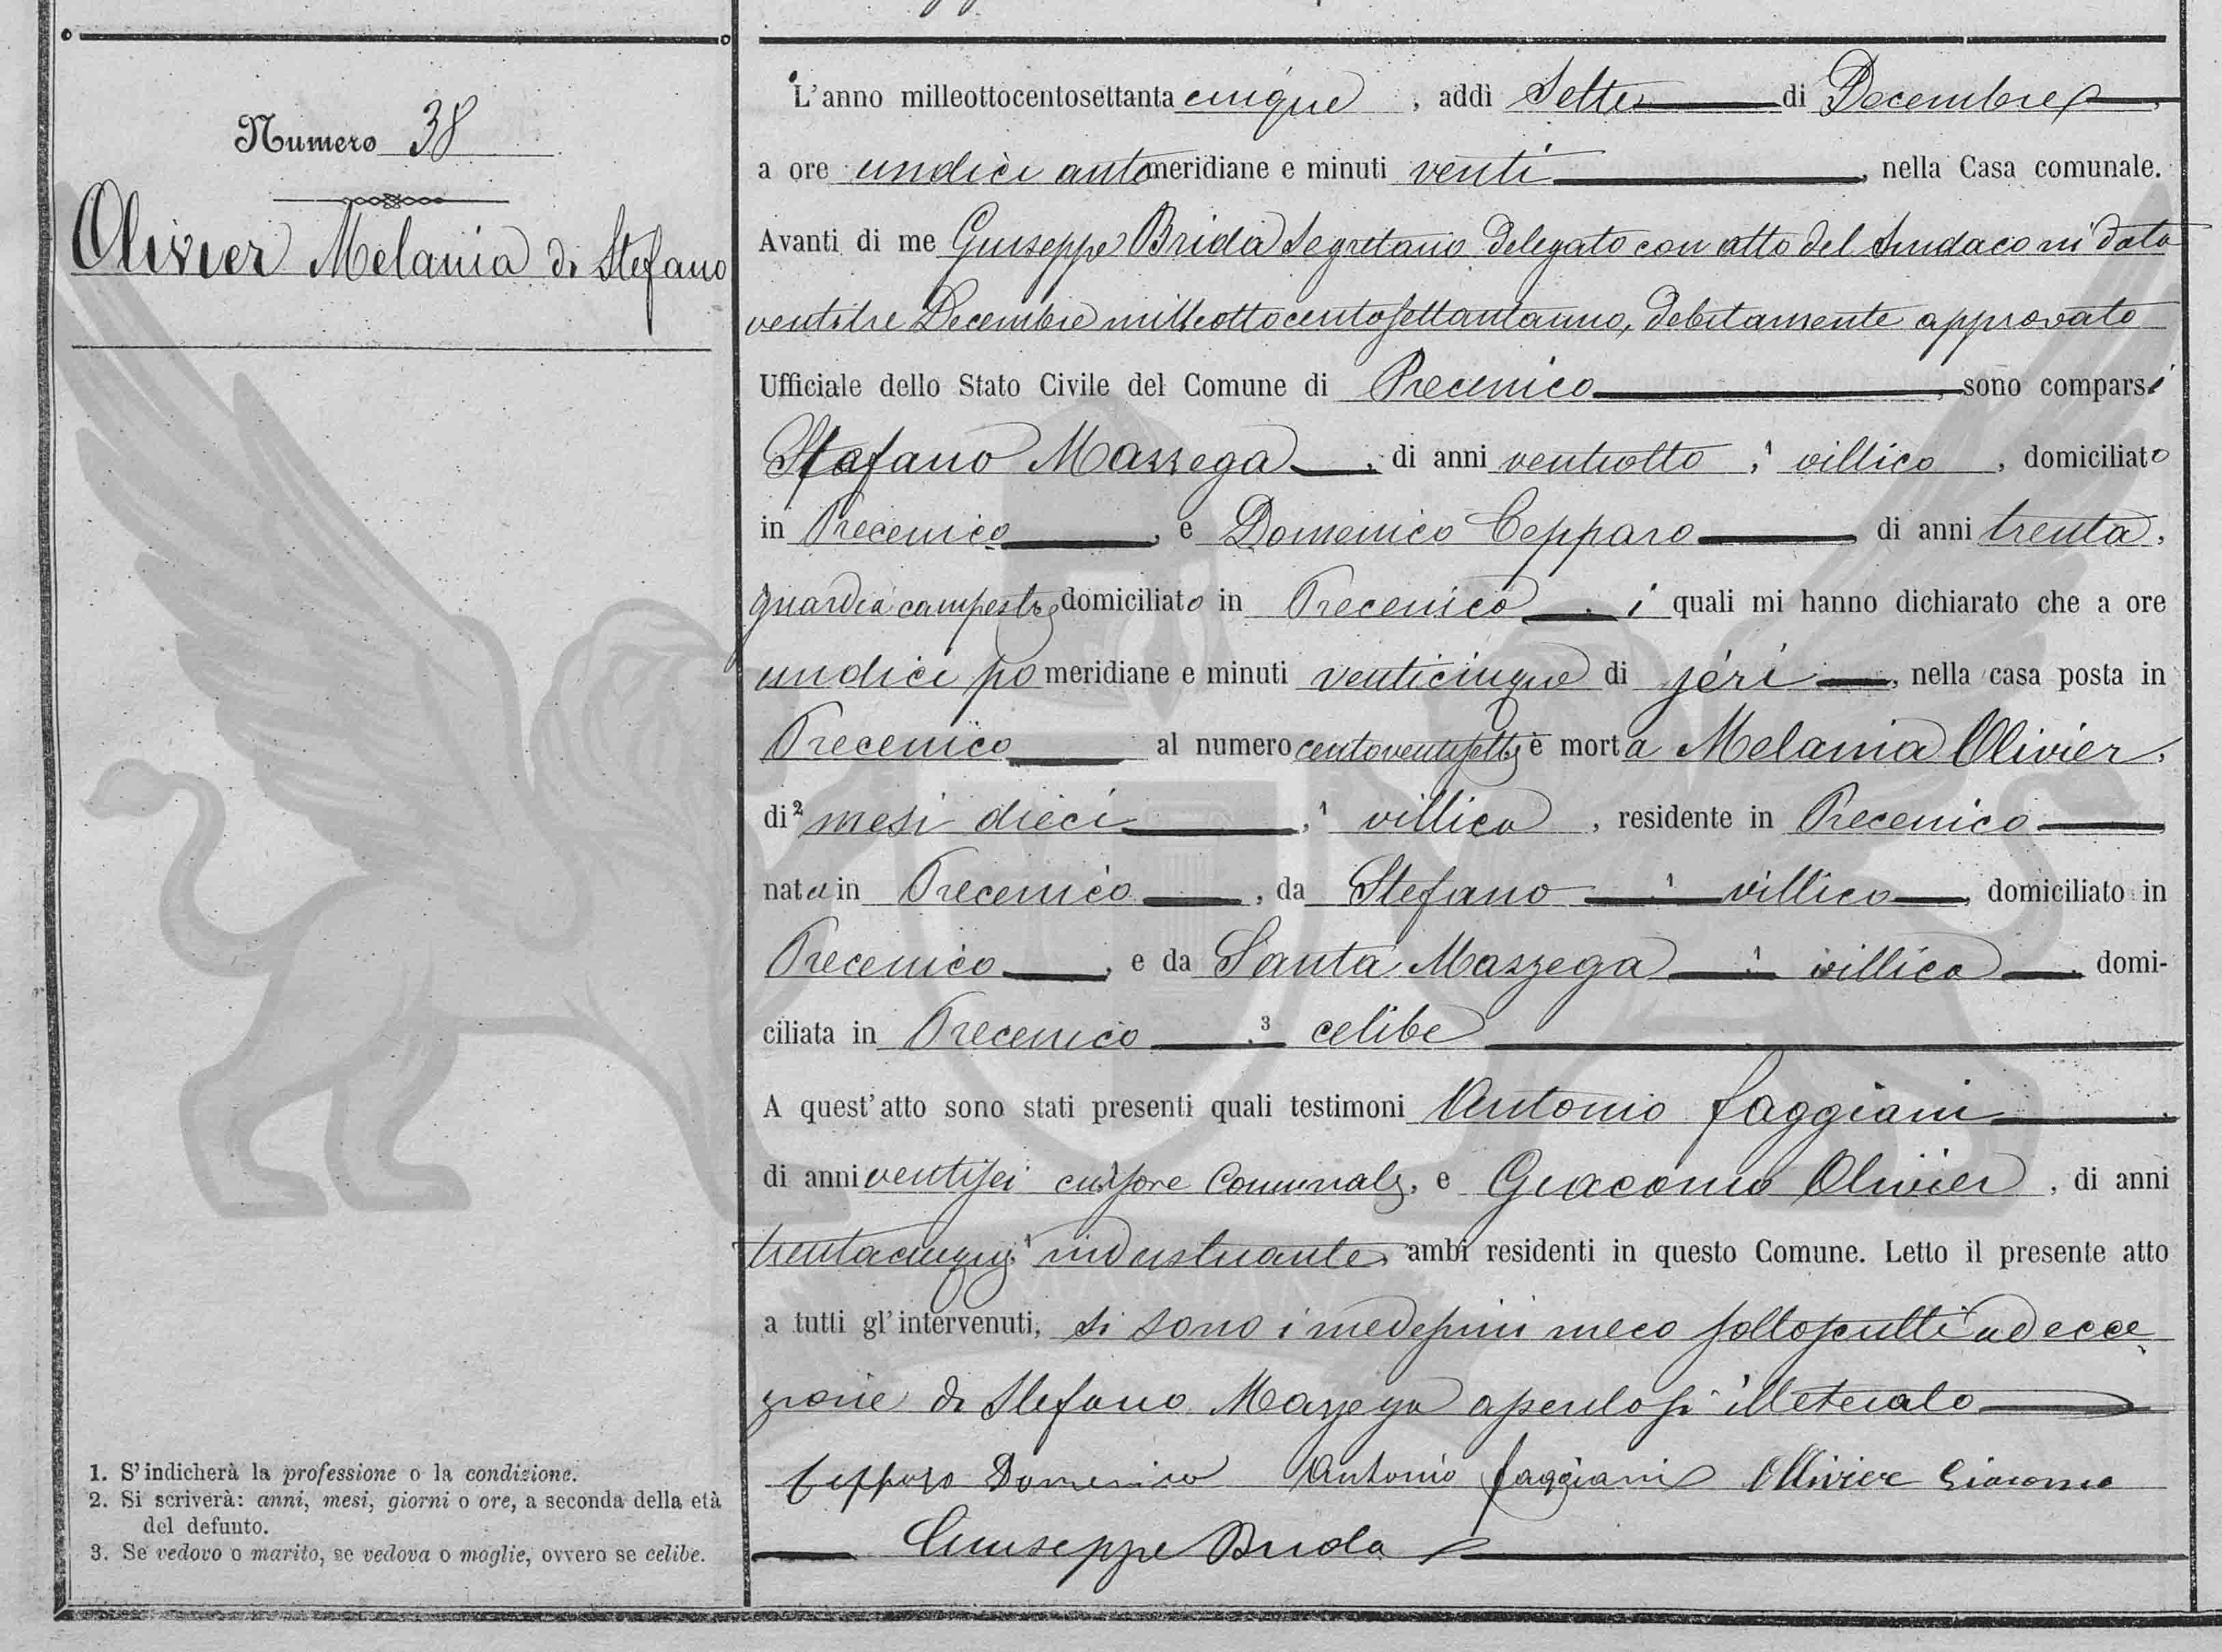 Numero 38
Olivier Melania di Stefano
L'anno milleottocentosettanta cinque, addì Sette di Decembre,
a ore undici antemeridiane e minuti venti, nella Casa comunale.
Avanti di me Giuseppe Brida Segretario delegato con atto del Sindaco in data
ventitre Decembre milleottocentosettantauno, debitamente approvato
Ufficiale dello Stato Civile del Comune di Precenico, sono comparsi
Stefano Mazzega, di anni ventiotto, 1 villico, domiciliato
in Precenico, e Domenico Cepparo di anni trenta,
guardia campestre domiciliato in Precenico, i quali mi hanno dichiarato che a ore
undici pomeridiane e minuti venticinque di jeri, nella casa posta in
Precenico al numero centoventisette è morta Melania Olivier,
di 2 mesi dieci, 1 villica, residente in Precenico
nata in Precenico, da Stefano, 1 villico, domiciliato in
Precenico, e da Santa Mazzega, 1 villica, domi-
ciliata in Precenico, 3 celibe
A quest'atto sono stati presenti quali testimoni Antonio Faggiani,
di anni ventisei cursore Comunale, e Giacomo Olivier, di anni
trentacinque, 1 industriante, ambi residenti in questo Comune. Letto il presente atto
a tutti gl'intervenuti, si sono i medesimi meco sottoscritti ad ecce
zione di Stefano Mazzega asseritosi illeterato
Cepparo Domenico Antonio Faggiani Ollivier Giacomo
Giuseppe Brida
1. S'indicherà la professione o la condizione.
2. Si scriverà: anni, mesi, giorni o ore, a seconda della età
del defunto.
3. Se vedovo o marito, se vedova o moglie, ovvero se celibe.